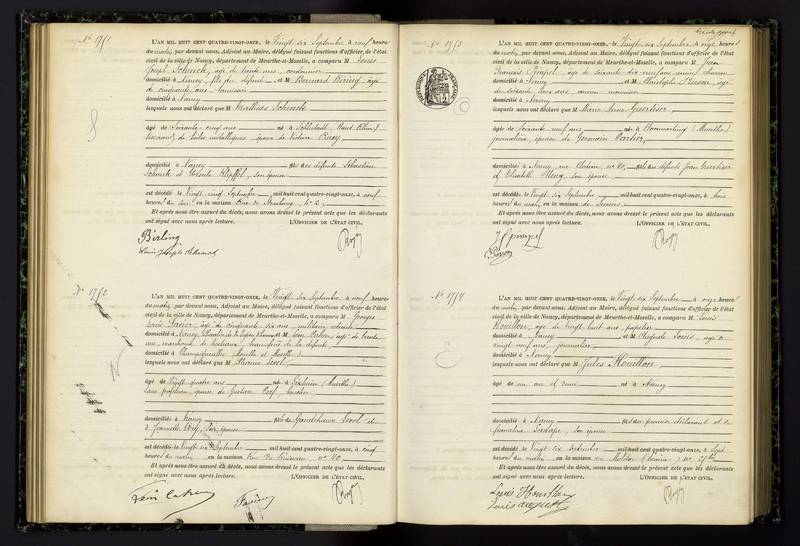 N° 1751
L'AN MIL HUIT CENT QUATRE-VINGT-ONZE, le Vingt six Septembre à neuf heures
du matin, par devant nous, Adjoint au Maire, délégué faisant fonctions d'officier de l'état
civil de la ville de Nancy, département de Meurthe-et-Moselle, a comparu M Louis
Joseph Schenck, âgé de trente ans, cordonnier
domicilié à Nancy, fils du défunt et M Bernard Birling âgé
de cinquante ans
domicilié à Nancy
lesquels nous ont déclaré que M Mathias Schenck
âgé de Soixante cinq ans né à Schlestadt (Haut Rhin)
de toiles métalliques, époux de Victoire
domicilié à Nancy fils des défunts Sébastien
Schenck et son épouse
est décédé le Vingt cinq Septembre mil huit cent quatre-vingt-onze, à neuf
heures du soir en la maison Rue de Strasbourg, n° 2
Et après nous être assuré du décès, nous avons dressé le présent acte que les déclarants
ont signé avec nous après lecture. L'OFFICIER DE L'ÉTAT CIVIL,
Birling
Louis Joseph Schenck
N° 1752
L'AN MIL HUIT CENT QUATRE-VINGT-ONZE, le Vingt six Septembre à neuf heures
du matin, par devant nous, Adjoint au Maire, délégué faisant fonctions d'officier de l'état
civil de la ville de Nancy, département de Meurthe-et-Moselle, a comparu M Georges
Louis âgé de cinquante six ans, militaire retraité
domicilié à Nancy, Chevalier de la Légion d'honneur et M Léon Cahen, âgé de trente
ans, marchand de bestiaux, beau frère de la défunte
domicilié à Champigneulles (Meurthe et Moselle)
lesquels nous ont déclaré que M
âgé de Vingt quatre ans né à (Moselle)
sans profession, épouse de Gustave boucher
domicilié à Nancy fille de
son épouse
est décédé le Vingt six Septembre mil huit cent quatre-vingt-onze, à cinq
heures du matin en la maison Rue n° 40
Et après nous être assuré du décès, nous avons dressé le présent acte que les déclarants
ont signé avec nous après lecture. L'OFFICIER DE L'ÉTAT CIVIL,
Léon Cahen
N° 1753
L'AN MIL HUIT CENT QUATRE-VINGT-ONZE, le Vingt six Septembre à onze heures
du matin, par devant nous, Adjoint au Maire, délégué faisant fonctions d'officier de l'état
civil de la ville de Nancy, département de Meurthe-et-Moselle, a comparu M Jean
François âgé de soixante dix neuf ans, ancien charron
domicilié à Nancy et M Christophe Pierson, âgé
de soixante huit ans, ancien menuisier
domicilié à Nancy
lesquels nous ont déclaré que M Marie Anne
âgée de Soixante neuf ans née à (Meurthe)
journalière, épouse de Germain
domicilié à Nancy, rue n° 40 fille des défunts Jean
et Elisabeth son épouse
est décédé le Vingt six Septembre mil huit cent quatre-vingt-onze, à trois
heures du matin en la maison de Secours
Et après nous être assuré du décès, nous avons dressé le présent acte que les déclarants
ont signé avec nous après lecture. L'OFFICIER DE L'ÉTAT CIVIL,
Pierson
N° 1754
L'AN MIL HUIT CENT QUATRE-VINGT-ONZE, le Vingt six Septembre à onze heures
du matin, par devant nous, Adjoint au Maire, délégué faisant fonctions d'officier de l'état
civil de la ville de Nancy, département de Meurthe-et-Moselle, a comparu M Louis
Houillon, âgé de Vingt huit ans, papetier
domicilié à Nancy et M Auguste Louis, âgé de
vingt neuf ans, journalier
domicilié à Nancy
lesquels nous ont déclaré que M Jules Houillon
âgé de un an et demi né à Nancy
domicilié à Nancy fils du premier déclarant et de
son épouse
est décédé le Vingt six Septembre mil huit cent quatre-vingt-onze, à Sept
heures du matin en la maison du Molitor (chemin)
Et après nous être assuré du décès, nous avons dressé le présent acte que les déclarants
ont signé avec nous après lecture. L'OFFICIER DE L'ÉTAT CIVIL,
Louis Houillon
Louis auguste